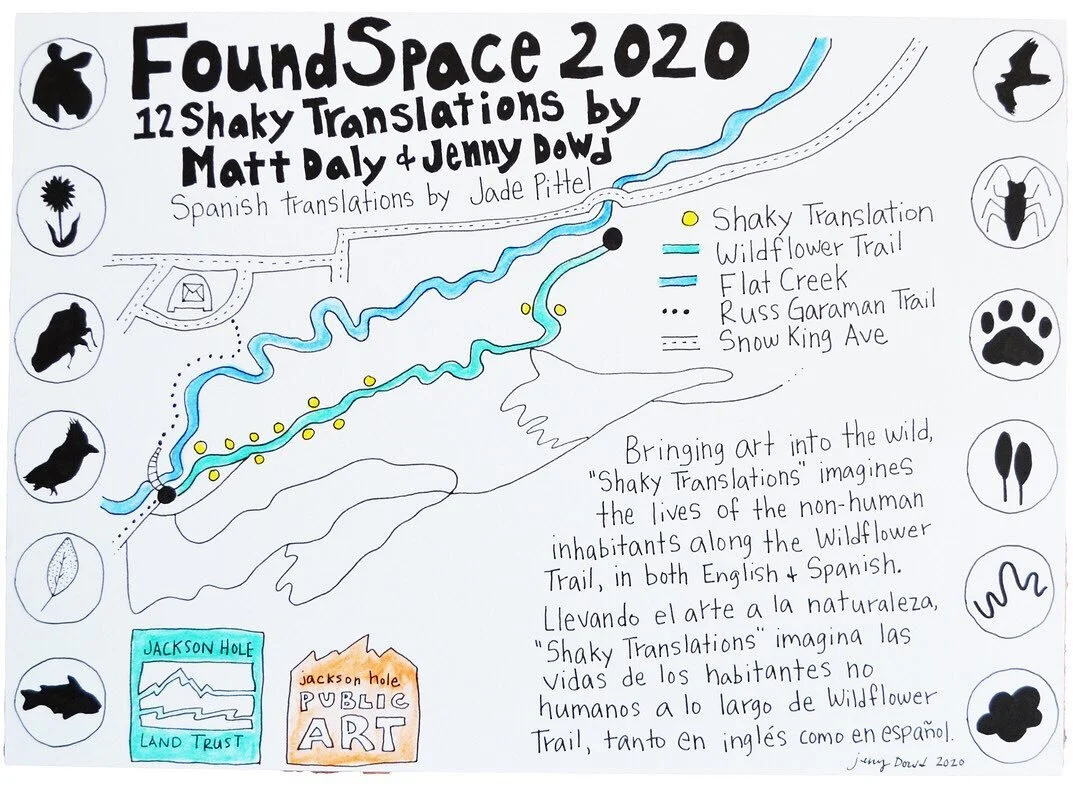 FoundSpace 2020
12 Shaky Translations by
Matt Daly & Jenny Dowd
Spanish translations by Jade Pittel
Shaky Translation
Wildflower Trail
Flat Creek
Russ Garaman Trail
Snow King Ave
Bringing art into the wild,
"Shaky Translations" imagines
the lives of the non-human
inhabitants along the Wildflower
Trail, in both English & Spanish.
Llevando el arte a la naturaleza,
"Shaky Translations" imagina las
vidas de los habitantes no
humanos a lo largo de Wildflower
Trail, tanto en inglés como en español.
Jenny Dowd 2020
JACKSON HOLE
LAND TRUST
jackson hole
PUBLIC
ART